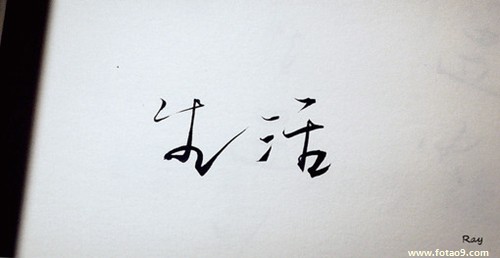 生活
Ray
www.fotao9.com